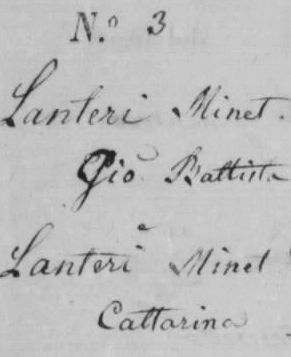 N.º 3
Lanteri Minet.
Gio Battista
e
Lanteri Minet
Cattarina